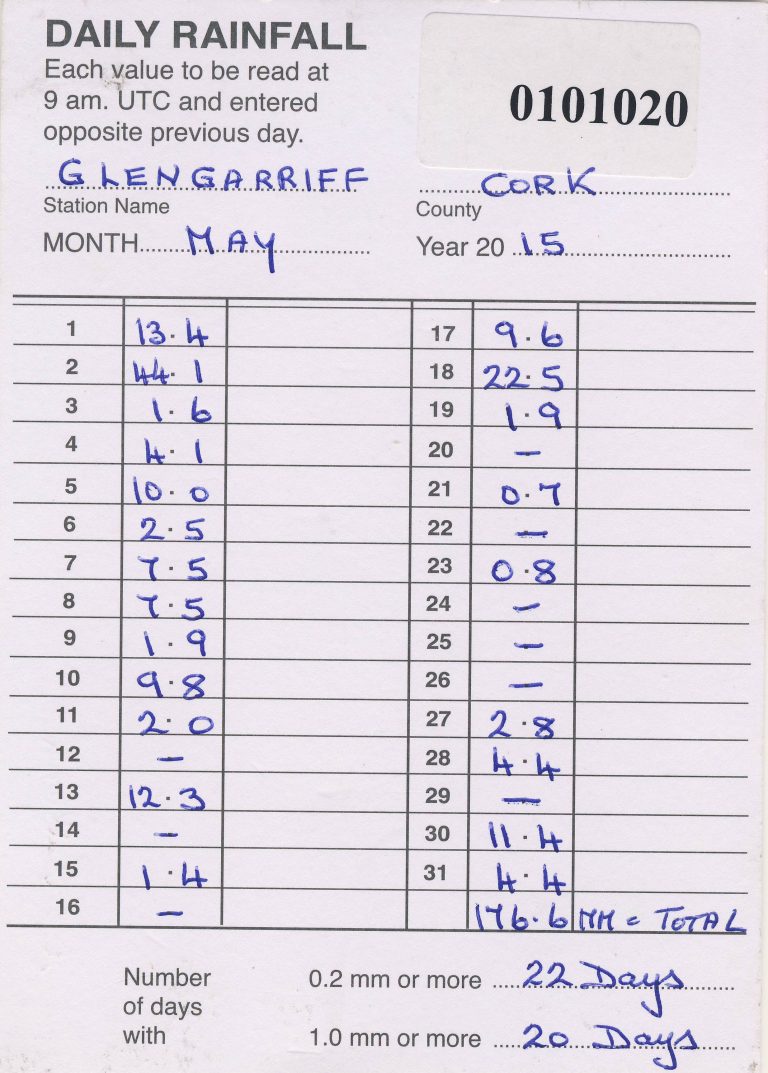 DAILY RAINFALL
Each value to be read at
9 am. UTC and entered
opposite previous day.
0101020
GLENGARRIFF CORK
Station Name County
MONTH MAY Year 20 15
1 13.4 17 9.6
2 44.1 18 22.5
3 1.6 19 1.9
4 4.1 20 –
5 10.0 21 0.7
6 2.5 22 –
7 7.5 23 0.8
8 7.5 24 –
9 1.9 25 –
10 9.8 26 –
11 2.0 27 2.8
12 – 28 4.4
13 12.3 29 –
14 – 30 11.4
15 1.4 31 4.4
16 – 176.6 MM = TOTAL
Number 0.2 mm or more 22 Days
of days
with 1.0 mm or more 20 Days